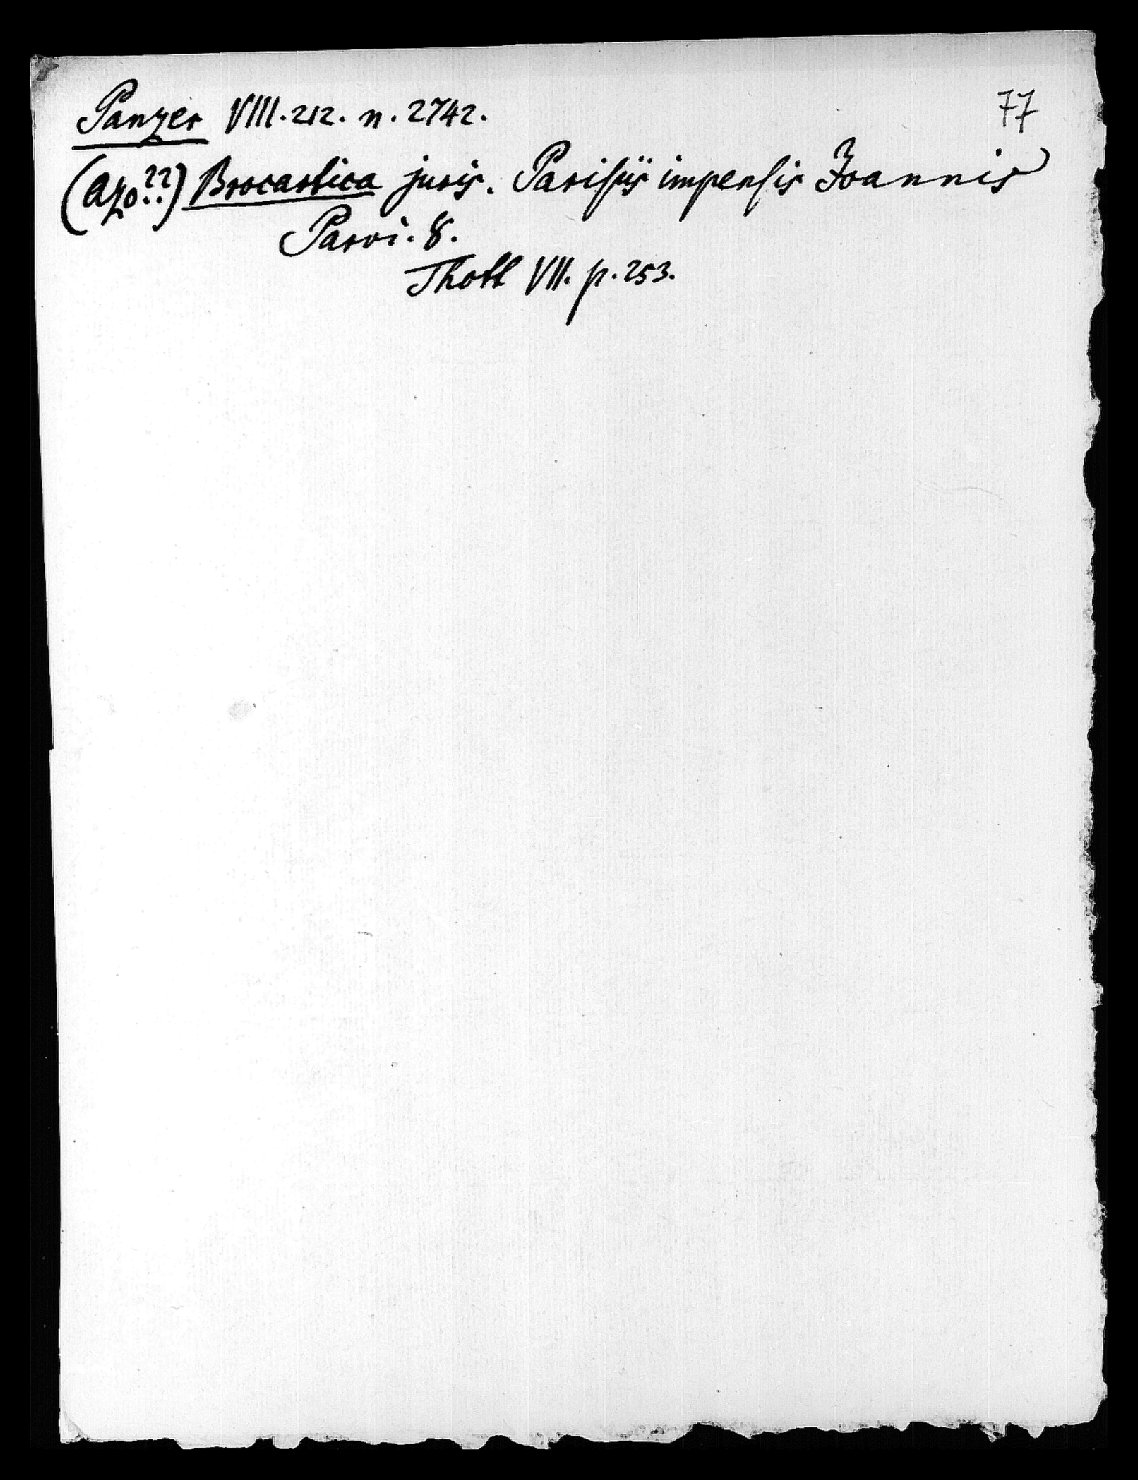 Panzer VIII. 212. n. 2742.
77
(Azo??) Brocardica juris. Parisiis impensis Joannis
Parvi. 8.
Thott VII. p. 253.